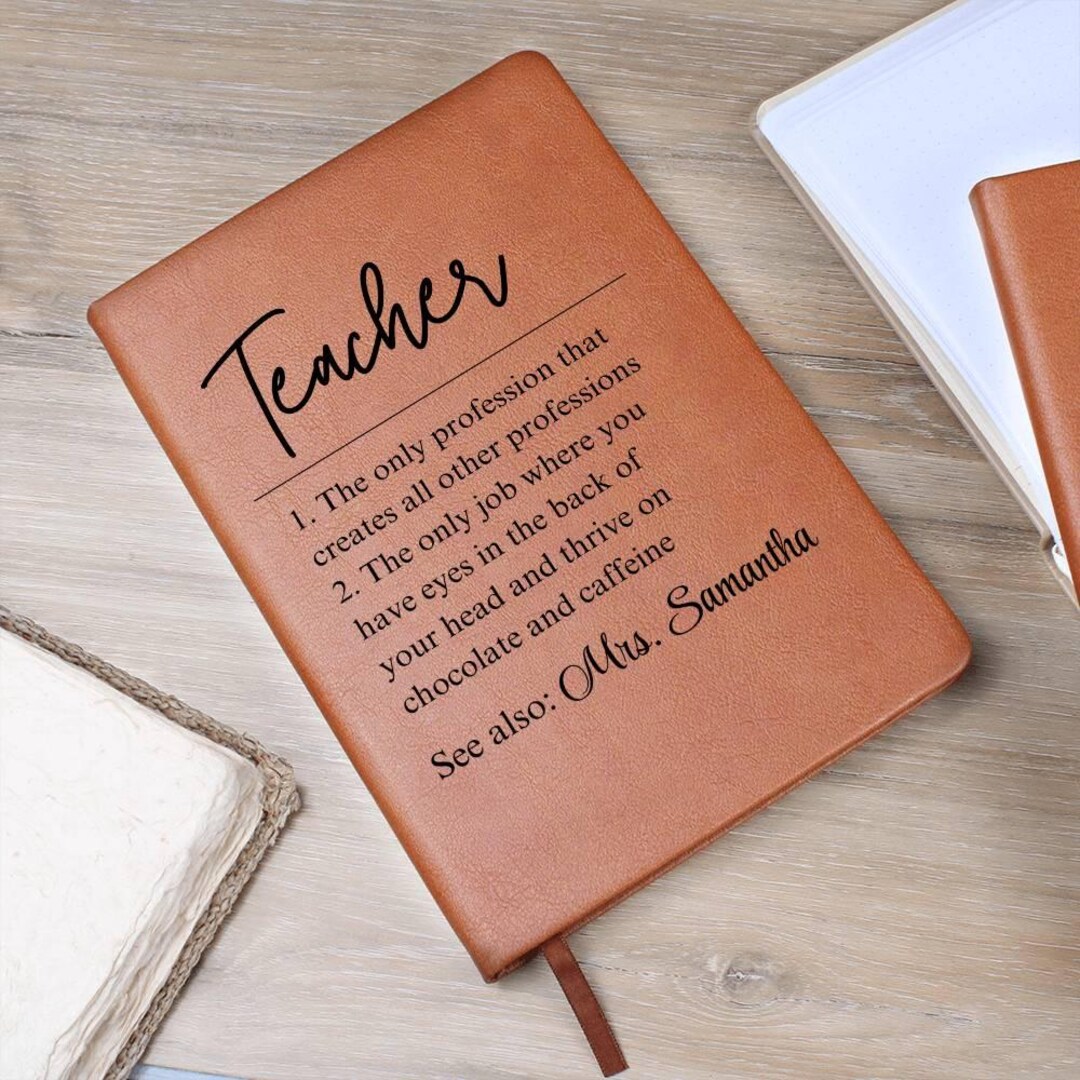 Teacher
1. The only profession that
creates all other professions
2. The only job where you
have eyes in the back of
your head and thrive on
chocolate and caffeine
See also: Mrs. Samantha